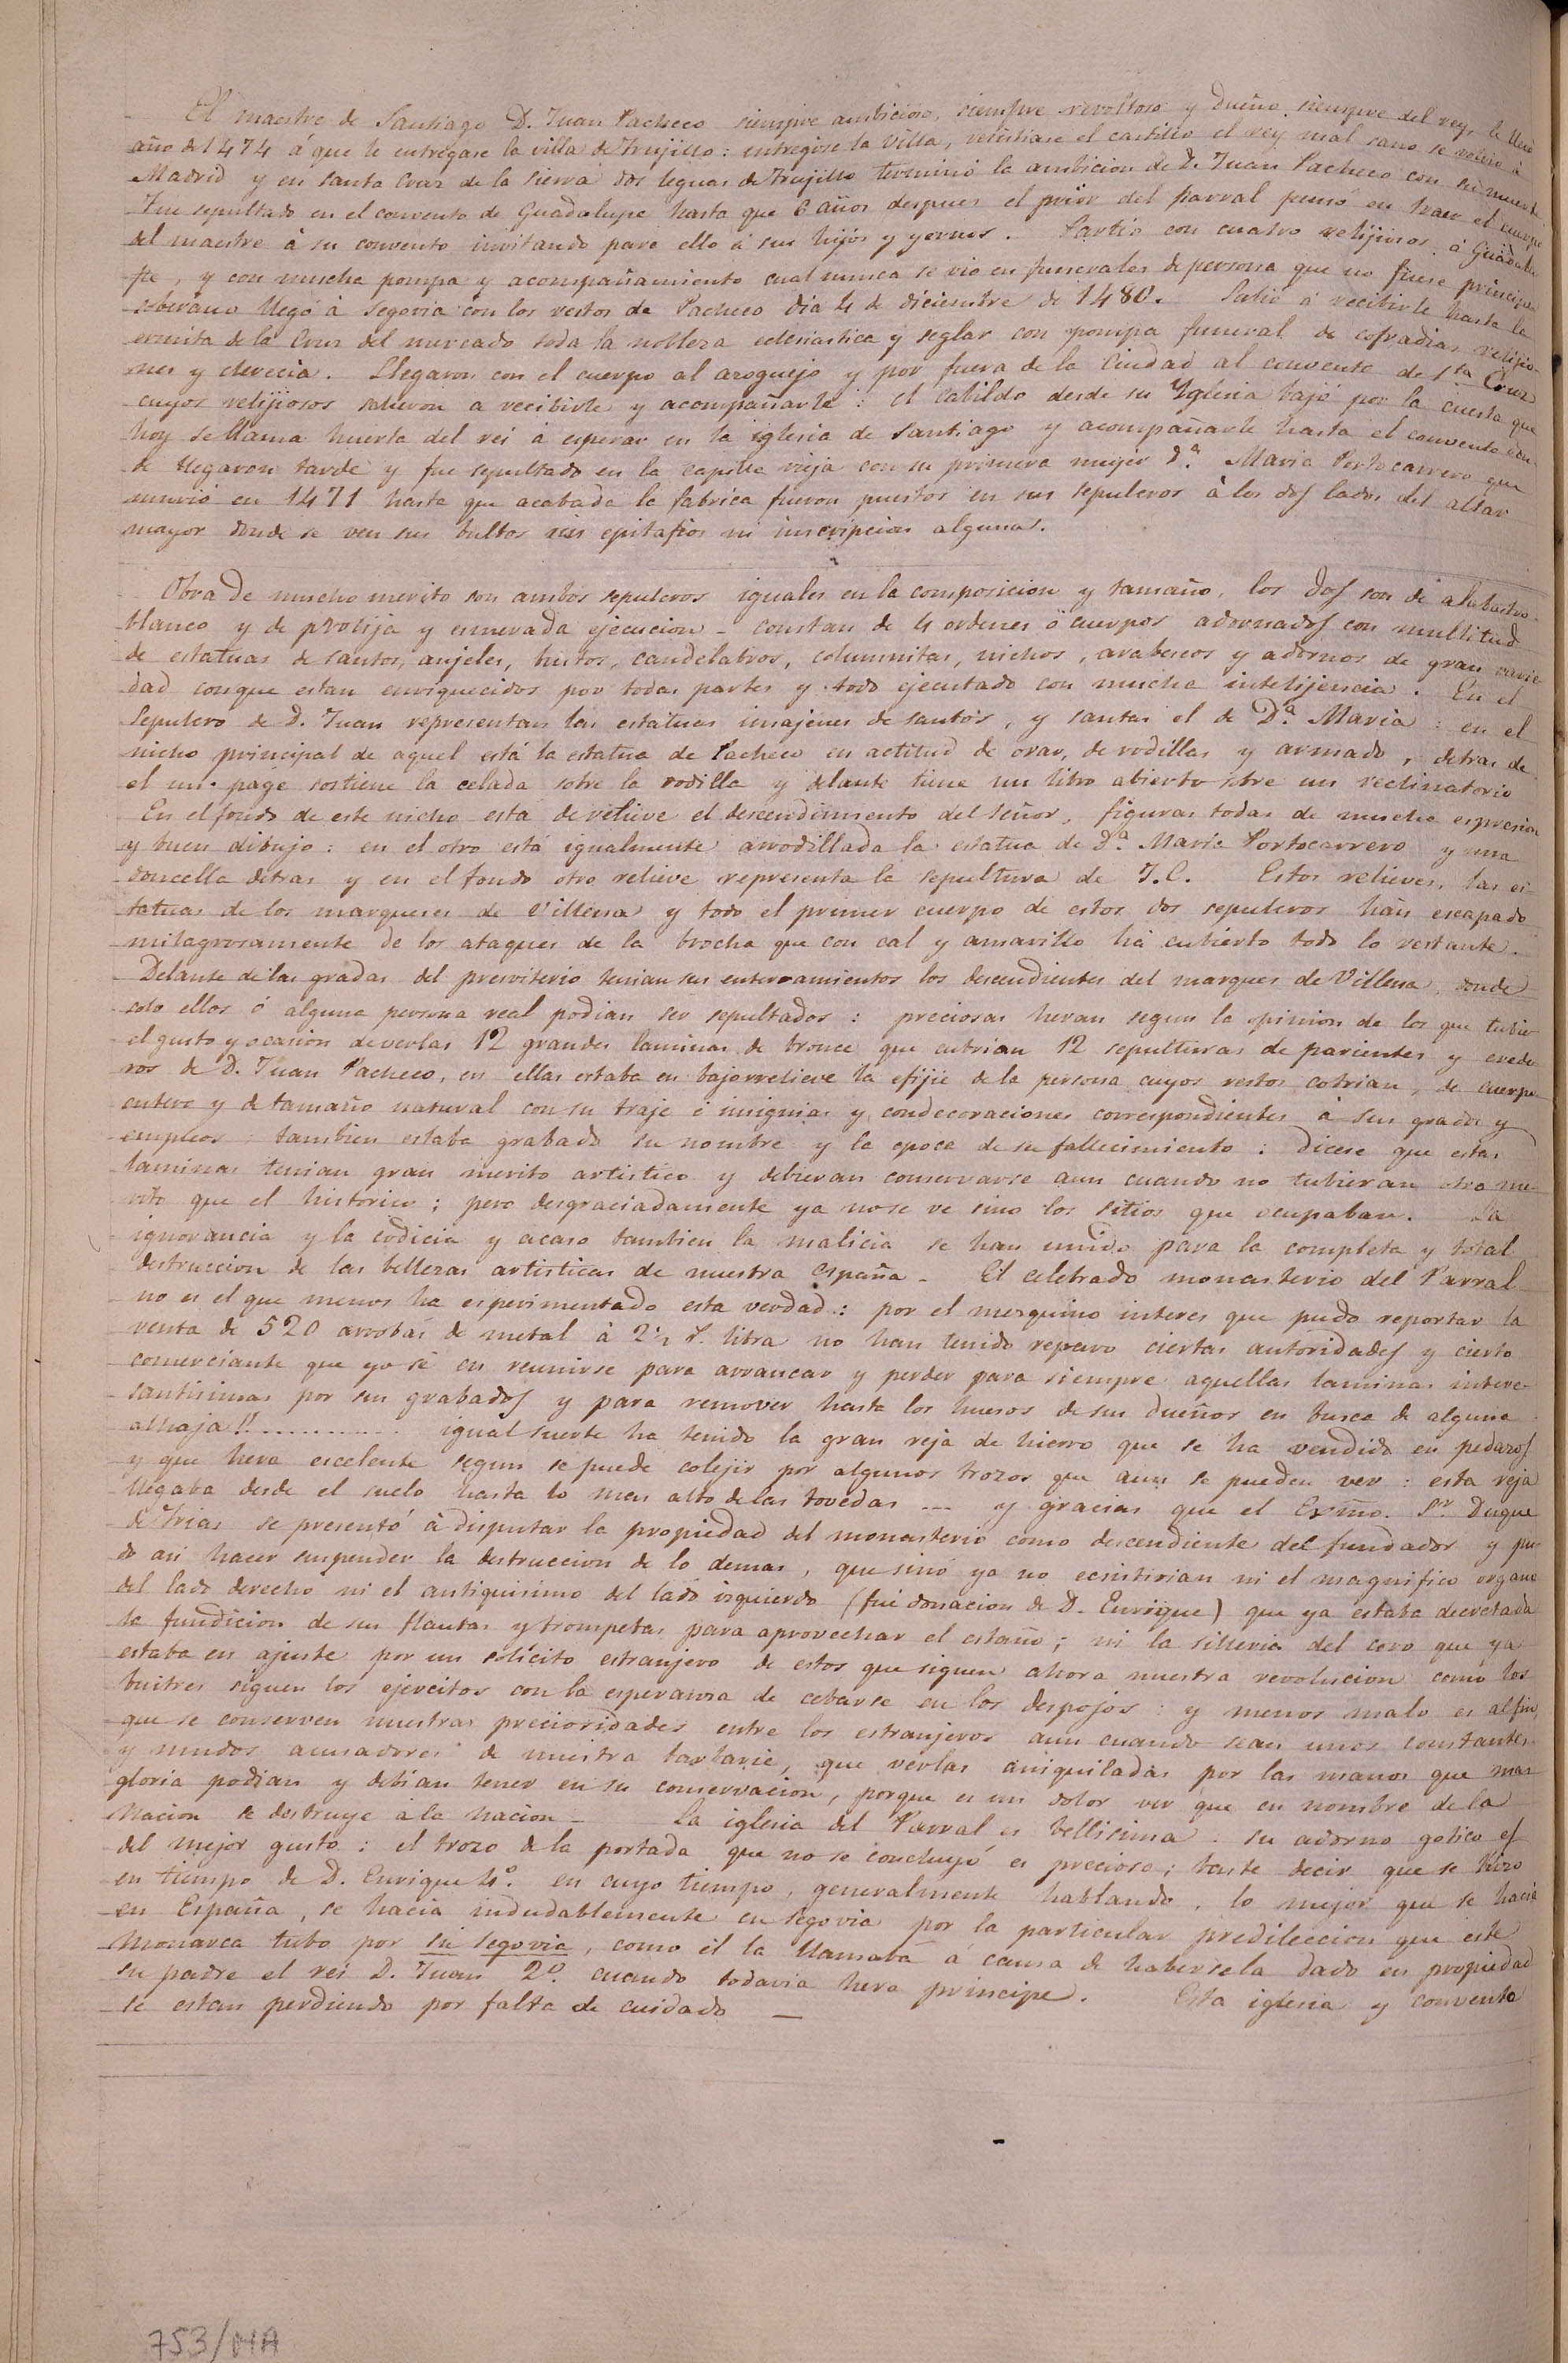 El maestre de Santiago D. Juan Pacheco siempre ambicioso, siempre revoltoso y dueño siempre del rey, le llevó
año de 1474 á que le entregase la villa de Trujillo: entregóse la villa, resistiase el castillo el rey mal sano se volvió á
Madrid y en santa Cruz de la sierra dos leguas de Trujillo terminó la ambicion de D. Juan Pacheco con su muerte
Fue sepultado en el convento de Guadalupe hasta que 6 años despues el prior del parral pensó en traer el cuerpo
del maestre á su convento invitando para ello á sus hijos y yernos. Partió con cuatro relijiosos á Guadalu
pe, y con mucha pompa y acompañamiento cual nunca se vio en funerales de persona que no fuese principe
soberano llegó á Segovia con los restos de Pacheco dia 4 de diciembre de 1480. Salió á recibirle hasta la
ermita de la Cruz del mercado toda la nobleza eclesiastica y seglar con pompa funeral de cofradias relijio-
nes y clerecia. Llegaron con el cuerpo al azoguejo y por fuera de la Ciudad al convento de Sta Cruz
cuyos relijiosos salieron a recibirle y acompañarle: el Cabildo desde su Yglesia bajó por la cuesta que
hoy se llama huerta del rei á esperar en la iglesia de Santiago y acompañarle hasta el convento don-
de llegaron tarde y fue sepultado en la capilla vieja con su primera mujer D.ª Maria Portocarrero que
murió en 1471 hasta que acabada la fabrica fueron puestos en sus sepulcros á los dos lados del altar
mayor donde se ven sus bultos sin epitafios ni inscripcion algunas.
Obra de mucho merito son ambos sepulcros iguales en la composicion y tamaño, los dos son de alabastro
blanco y de prolija y esmerada ejecucion - constan de 4 ordenes ó cuerpos adornados con multitud
de estatuas de santos, anjeles, bustos, candelabros, columnitas, nichos, arabescos y adornos de gran varie
dad conque estan enriquecidos por todas partes y todo ejecutado con mucha intelijencia. En el
Sepulcro de D. Juan representan las estatuas imajenes de santos, y santas el de D.ª Maria: en el
nicho principal de aquel está la estatua de Pacheco en actitud de orar, de rodillas y armado, detras de
el un page sostiene la celada sobre la rodilla y delante tiene un libro abierto sobre un reclinatorio
En el fondo de este nicho esta de relieve el descendimiento del Señor, figuras todas de mucha espresion
y buen dibujo: en el otro está igualmente arrodillada la estatua de D.ª Maria Portocarrero y una
doncella detras y en el fondo otro relieve representa la sepultura de J.C. Estos relieves, las es-
tatuas de los marqueses de Villena y todo el primer cuerpo de estos dos sepulcros han escapado
milagrosamente de los ataques de la brocha que con cal y amarillo ha cubierto todo lo restante.
Delante de las gradas del presviterio tenian sus enterramientos los descendientes del marques de Villena, donde
solo ellos ó alguna persona real podian ser sepultados: preciosas heran segun la opinion de los que tubie
el gusto y ocasion de verlas 12 grandes laminas de bronce que cubrian 12 sepulturas de parientes y erede-
ros de D. Juan Pacheco, en ellas estaba en bajorrelieve la efijie de la persona cuyos restos cobrian, de cuerpo
entero y de tamaño natural con su traje é insignias y condecoraciones correspondientes á sus grados y
empleos: tambien estaba grabado su nombre y la epoca de su fallecimiento: dicese que estas
laminas tenian gran merito artistico y debieran conservarse aun cuando no tubieran otro me-
rito que el historico; pero desgraciadamente ya nose ve sino los sitios que ocupaban. La
ignorancia y la codicia y acaso tambien la malicia se han unido para la completa y total
destruccion de las bellezas artisticas de nuestra españa - El celebrado monasterio del Parral
no es el que menos ha esperimentado esta verdad: por el mezquino interes que pudo reportar la
venta de 520 arrobas de metal á 2½ r. libra no han tenido reparo ciertas autoridades y cierto
comerciante que yo sé en reunirse para arrancar y perder para siempre aquellas laminas intere-
santisimas por sus grabados y para remover hasta los huesos de sus dueños en busca de alguna
alhaja!! .......... igual suerte ha tenido la gran reja de hierro que se ha vendido en pedazos
y que hera escelente segun se puede colejir por algunos trozos que aun se pueden ver: esta reja
llegaba desde el suelo hasta lo mas alto de las bovedas --- y gracias que el Exmo. Sr. Duque
de Frias se presentó á disputar la propiedad del monasterio como descendiente del fundador y pu-
do asi hacer suspender la destruccion de lo demas, que sinó ya no ecsistirian ni el magnifico organo
del lado derecho ni el antiquisimo del lado izquierdo (fué donacion de D. Enrique) que ya estaba decretada
la fundicion de sus flautas y trompetas para aprovechar el estaño; ni la silleria del coro que ya
estaba en ajuste por un solícito estranjero de estos que siguen ahora nuestra revolucion como los
buitres siguen los ejercitos con la esperanza de cebarse en los despojos: y menos malo es al fin,
que se conserven nuestras preciosidades entre los estranjeros aun cuando sean unos constantes
y mudos acusadores de nuestra barbarie, que verlas aniquiladas por las manos que mas
gloria podian y debian tener en su conservacion, porque es un dolor ver que en nombre de la
Nacion se destruye á la nacion - La iglesia del Parral es bellisima: su adorno gotico es
del mejor gusto: el trozo de la portada que no se concluyó es precioso; baste decir que se hizo
en tiempo de D. Enrique 4.º en cuyo tiempo, generalmente hablando, lo mejor que se hacia
en España, se hacia indudablemente en Segovia por la particular predileccion que este
Monarca tubo por su Segovia, como él la llamaba á causa de habersela dado en propiedad
su padre el rei D. Juan 2.º cuando todavia hera principe. Esta iglesia y convento
se estan perdiendo por falta de cuidado —
753/HA